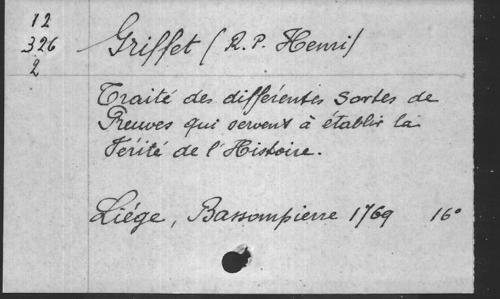 12
326
2
Griffet (R. P. Henri)
Traité des différentes Sortes de
Preuves qui servent à établir la
Vérité de l'Histoire.
Liége, Bassompierre 1769 16°